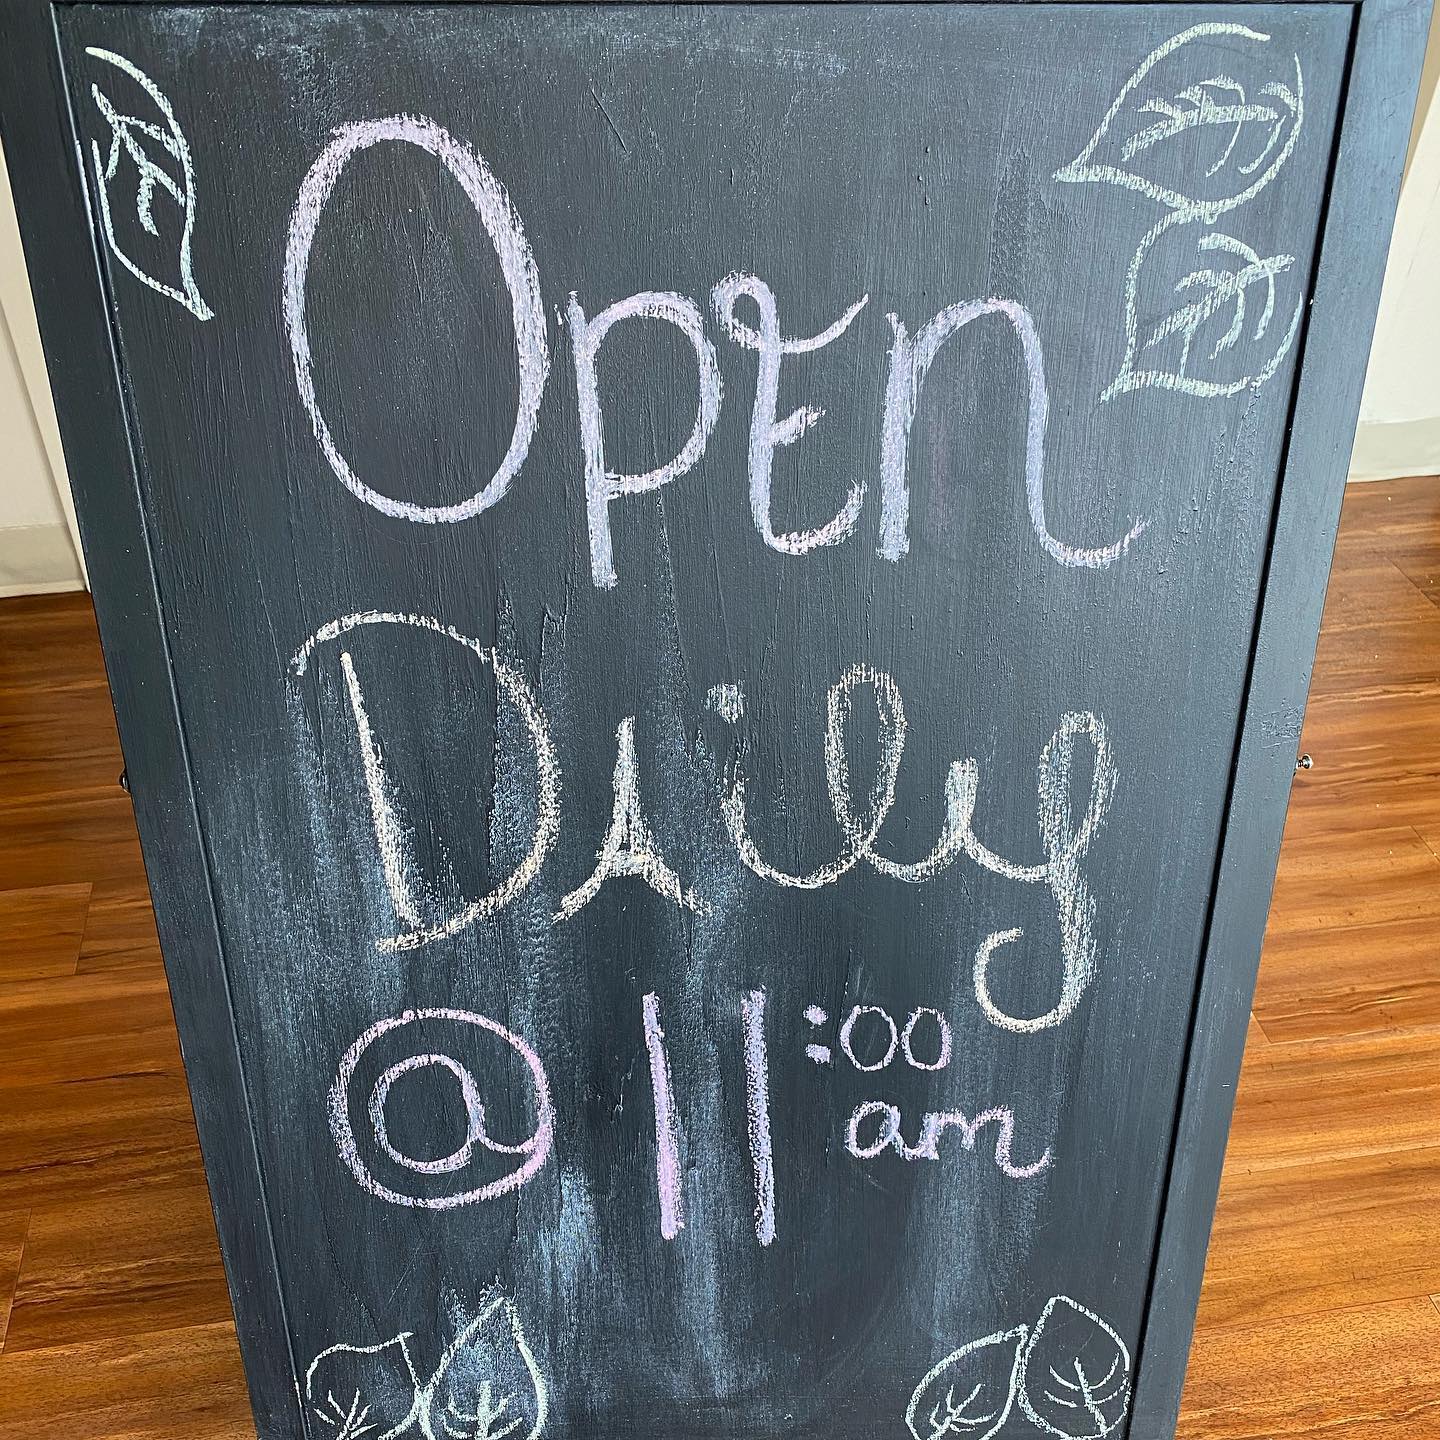 Open
Daily
@ 11:00
am